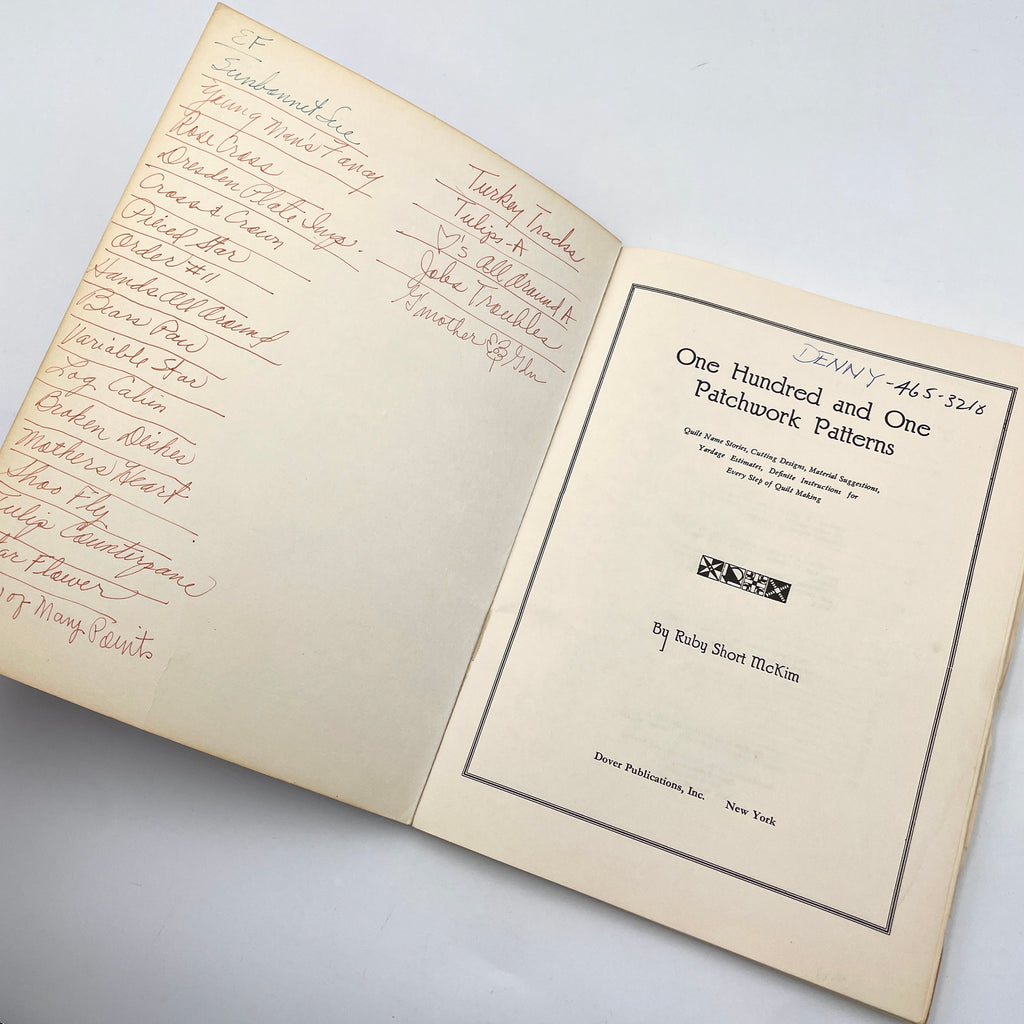 EF
Sunbonnet Sue
Young Man's Fancy
Rose Cross
Dresden Plate Imp.
Cross & Crown
Pieced Star
Order #11
Hands All Around
Bears Paw
Variable Star
Log Cabin
Broken Dishes
Mothers Heart
Shoo Fly
Tulip Counterpane
ar Flower
of Many Points
Turkey Tracks
Tulips-A
♡'s All Around A
Jobs Troubles
G'mother
DENNY-465-3210
One Hundred and One
Patchwork Patterns
Quilt Name Stories, Cutting Designs, Material Suggestions,
Yardage Estimates, Definite Instructions for
Every Step of Quilt Making
By Ruby Short McKim
Dover Publications, Inc. New York